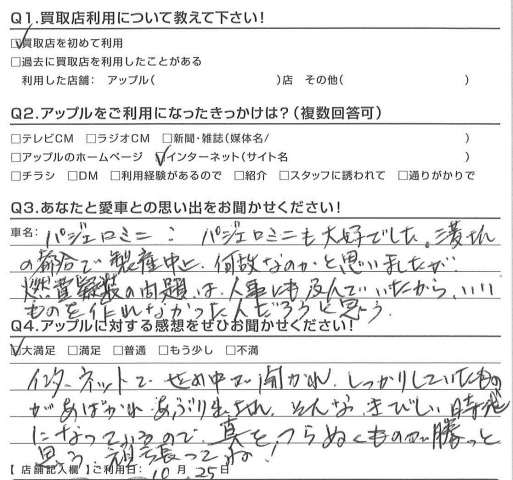 Q1.買取店利用について教えて下さい!
☑買取店を初めて利用
□過去に買取店を利用したことがある
利用した店舗: アップル( )店 その他( )
Q2.アップルをご利用になったきっかけは?(複数回答可)
□テレビCM □ラジオCM □新聞・雑誌(媒体名/ )
□アップルのホームページ ☑インターネット(サイト名 )
□チラシ □DM □利用経験があるので □紹介 □スタッフに誘われて □通りがかりで
Q3.あなたと愛車との思い出をお聞かせください!
車名: パジェロミニ: パジェロミニも大好でした。三菱さん
の都合で製産中止、何故なのかと思いましたが
燃費疑装の問題は、人事にも及んでいたから、いい
ものを作れなかった人だろうと思う。
Q4.アップルに対する感想をぜひお聞かせください!
☑大満足 □満足 □普通 □もう少し □不満
インターネットで、せめ中で聞かれ、しっかりしていたもの
があばかれ、あぶり出され、そんな、きびしい時代
になっているので、真をつらぬくものが勝っと
思う、頑張ってね!
【 店舗記入欄 】ご利用日: 10月 25日